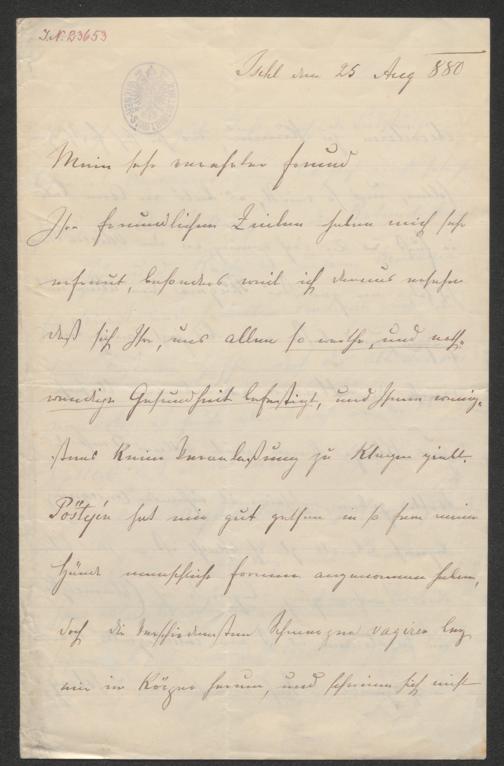 I.N. 23653
Ischl den 25 Aug 880
Mein sehr verehrter Freund
Ihre freundlichen Zeilen haben mich sehr
erfreut, besonders weil ich daraus ersehe
daß sich Ihre, uns allen so werthe, und noth-
wendige Gesundheit befestigt, und Ihnen wenig-
stens keine Veranlaßung zu Klagen giebt.
Pöstyén hat mir gut gethan in so fern meine
Hände menschliche Formen angenommen haben,
doch die verschiedensten Schmerzen vagiren
mir im Körper herum, und scheinen sich nicht